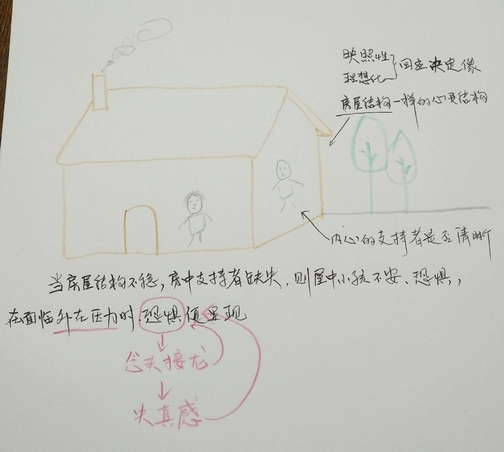 映照性
理想化
回应决定像
房屋结构一样的心灵结构
内心的支持者是否清晰
当房屋结构不稳，房中支持者缺失，则屋中小孩不安、恐惧，
在面临外在压力时 恐惧便呈现
念头接龙
失真感